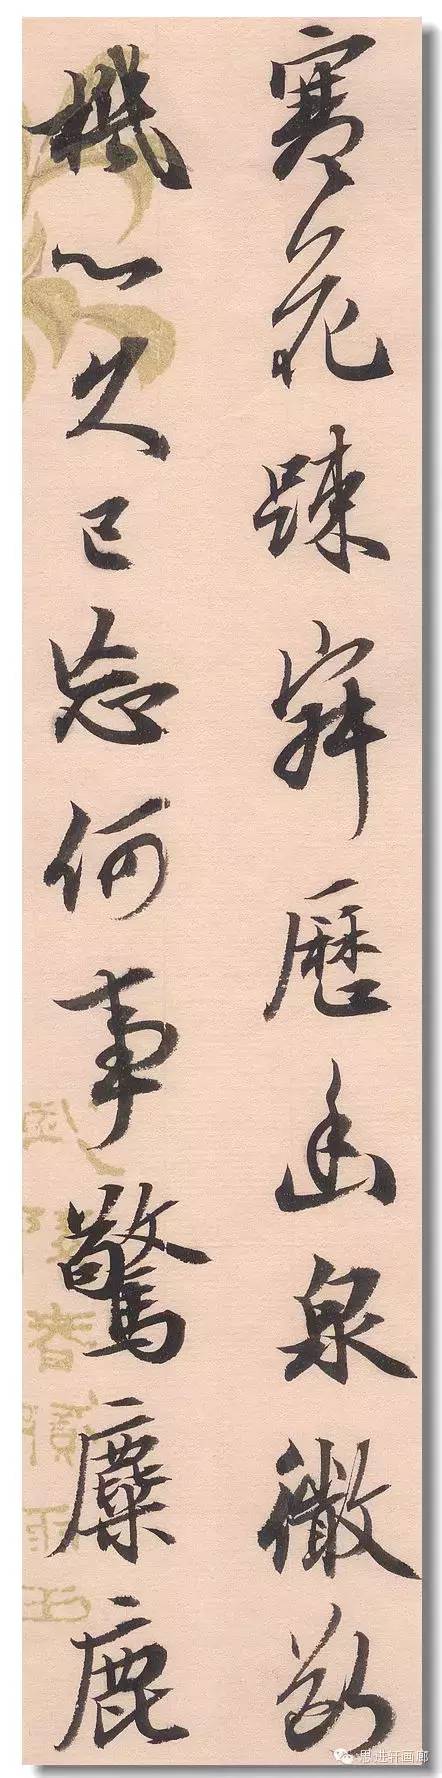 寒花踈寂歷幽泉微断
機心久已忘何事驚麋鹿
思进轩画廊